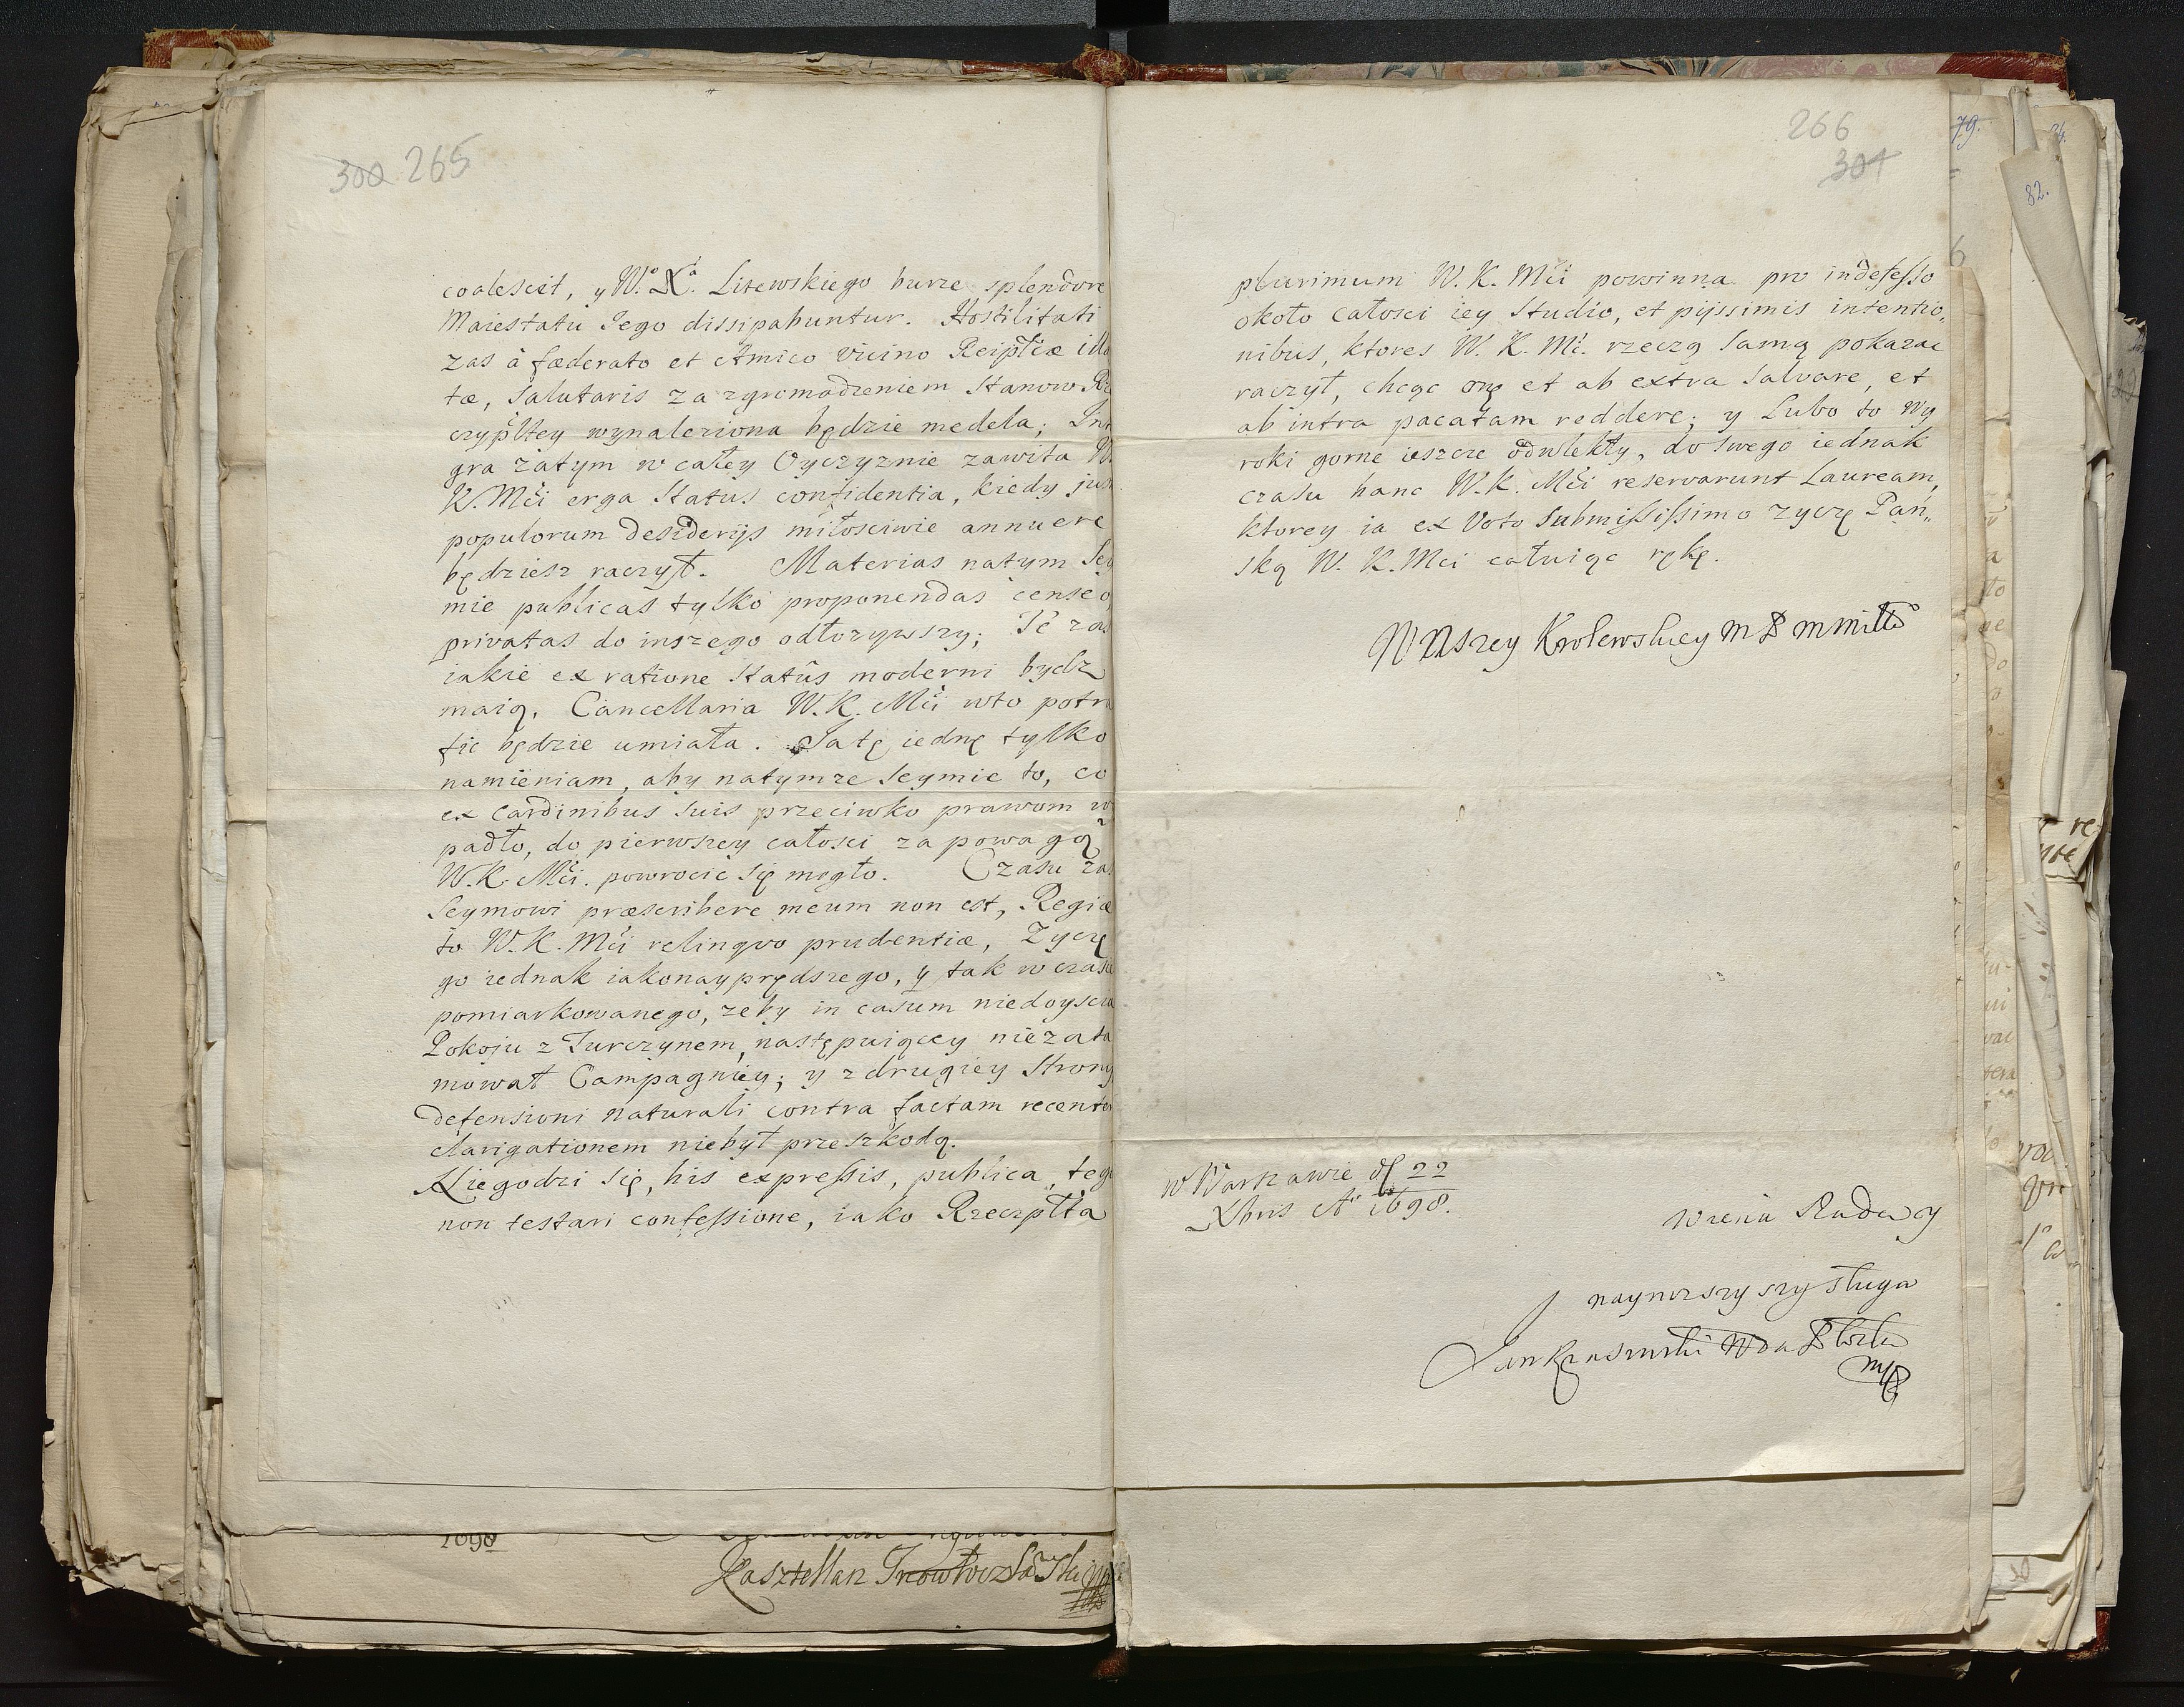 300 265
coalescet, y W.º X.ª Litewskiego burze splendore
Maiestatu Jego dissipabuntur. Hostilitati
zas à fæderato et Amico vicino Reiptcæ illa
tæ, Salutaris za zgromadzeniem Stanow Rze
czypltey wynaleziona będzie medela; Int
gra zatym w całey Oyczyznie zawita W.
K. Mci erga Status confidentia, kiedy jus
populorum desiderijs miłosciwie annuere
będziesz raczył. Materias natym Sey
mie publicas tylko proponendas censeo,
privatas do inszego odłozywszy; Te zas
iakie ex ratione Statûs moderni bydz
maią, Cancellaria W. K. Mci wto potra
fic będzie umiała. Ja tę iednę tylko
namieniam, aby natymze Seymie to, co
ex Cardinibus suis przeciwko prawom w
padło, do pierwszey całosci za powagą
W. K. Mci. powrocic się mogło. Czasu zas
Seymowi præscribere meum non est, Regiæ
to W. K. Mci relinqvo prudentiæ, Zyczę
go iednak iakonayprędszego, y tak w czasie
pomiarkowanego, zeby in casum niedoyscia
Pokoju z Turczynem, następuiącey nie zata
mował Campagniey; y z drugiey Strony
defensioni naturali contra factam recenter
Navigationem niebył przeszkodą.
Niegodzi się, his expressis, publica, tego
non testari confessione, iako Rzeczplta
1698
Kasztellan Inowłoczławski
266
301
plurimum W. K. Mci powinna pro indefesso
około całosci iey Studio, et pijssimis intentio„
nibus, ktores W. K. Mc. rzeczą samą pokazac
raczył, chcąc onę et ab extra Salvare, et
ab intra pacatam reddere; y Lubo to wy
roki gorne ieszcze odwlekły, do swego iednak
czasu hanc W. K. Mci reservarunt Lauream,
ktorey ia ex Voto Submississimo zyczę Pan„
ską W. K. Mci całuiąc rękę.
Waszey Krolewskiey M P M Mitto
w Warszawie d 22
Xbris Aº 1698.
wierna Rada y
naynizszy szy sługa
Jan Krasinski Wda Płocki
mp
79.
82.